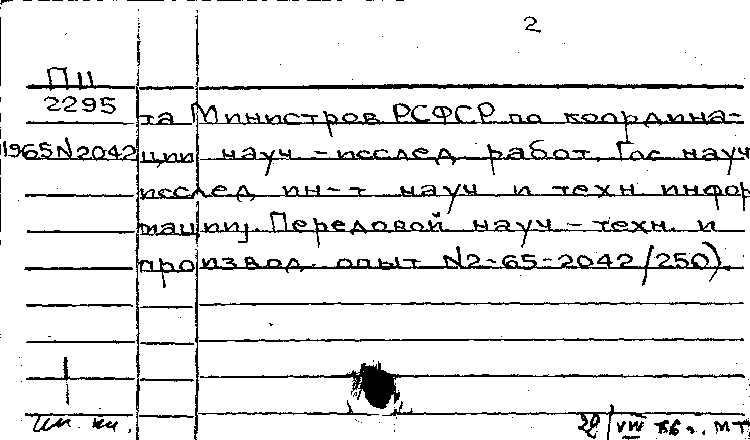 2
П 11
2295
1965 N2042
та Министров РСФСР по координа-
ции науч-исслед. работ. Гос науч
исслед. ин-т науч и техн инфор
мации. Передовой науч-техн. и
производ. опыт N2-65-2042/250).